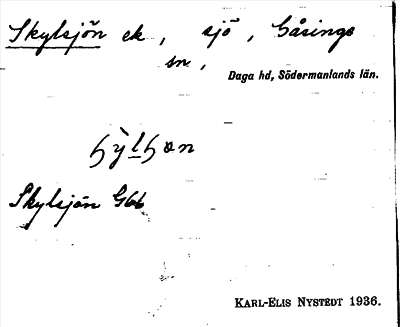 Skylsjön ek, sjö, Gåsinge
sn,
Daga hd, Södermanlands län.
Skylsjön G66
KARL-ELIS NYSTEDT 1936.